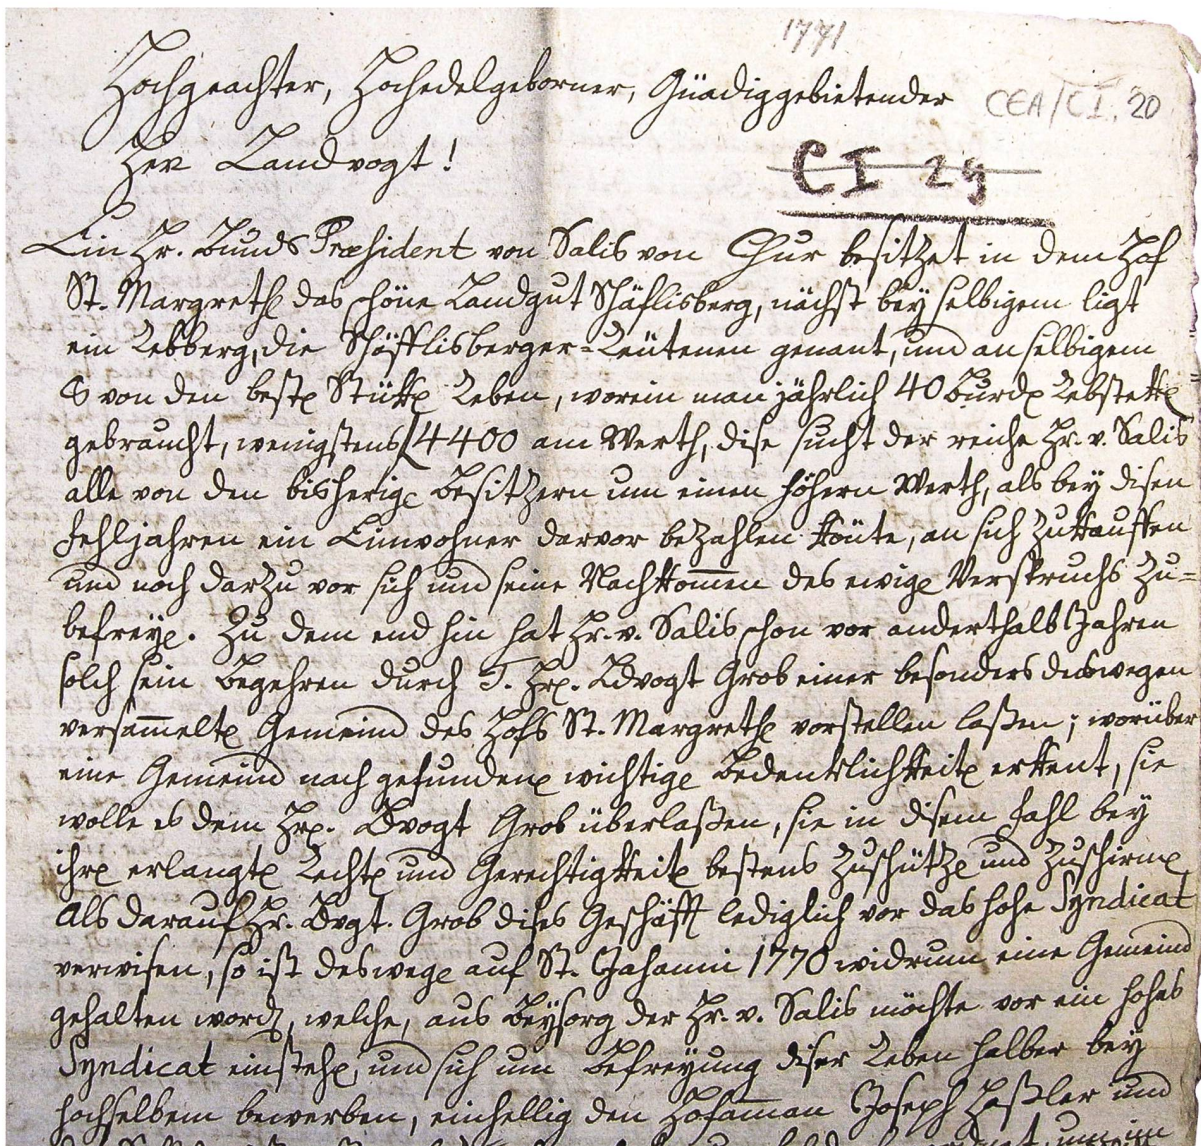 1771
Hochgeachter, Hochedelgeborner, Gnädiggebietender
CEA/CI. 20
Herr Landvogt!
CI 29
Ein Hr. Bunds Præsident von Salis von Chur besitzet in dem Hof
St. Margrethe das schöne Landgut Schäflisberg, nächst bey selbigem ligt
ein Rebberg, die Schäfflisberger-Leütenen genant, und an selbigem
8 von den beste Stükke Reben, worein man jährlich 40 Burde Rebstekke
gebraucht, wenigstens 4400 am Werth, dise sucht der reiche Hr. v. Salis
alle von den bisherige Besitzern um einen höhern Werth, als bey disen
Fehljahren ein Einwohner darvor bezahlen könte, an sich zukauffen
und noch darzu vor sich und seine Nachkommen des ewige Verspruchs zu-
befreye. Zu dem end hin hat Hr. v. Salis schon vor anderthalb Jahren
solch sein Begehren durch T. Hre. Ldvogt Grob einer besonders deswegen
versammelte Gemeind des Hofs St. Margrethe vorstellen laßen; worüber
eine Gemeind nach gefundene wichtige Bedenklichkeite erkent, sie
wolle es dem Hre. Ldvogt Grob überlaßen, sie in disem Fahl bey
ihre erlangte Rechte und Gerechtigkeite bestens zuschütze und zuschirme
Als darauf Hr. Ldvgt. Grob dises Geschäfft lediglich vor das hohe Syndicat
verwisen, so ist deswege auf St. Johanni 1770 widrum eine Gemeind
gehalten worde, welche, aus Beysorg der Hr. v. Salis möchte vor ein hohes
Syndicat einstehe, und sich um Befreyung diser Reben halber bey
hochselbem bewerben, einhellig den Hofamman Joseph Haßler und